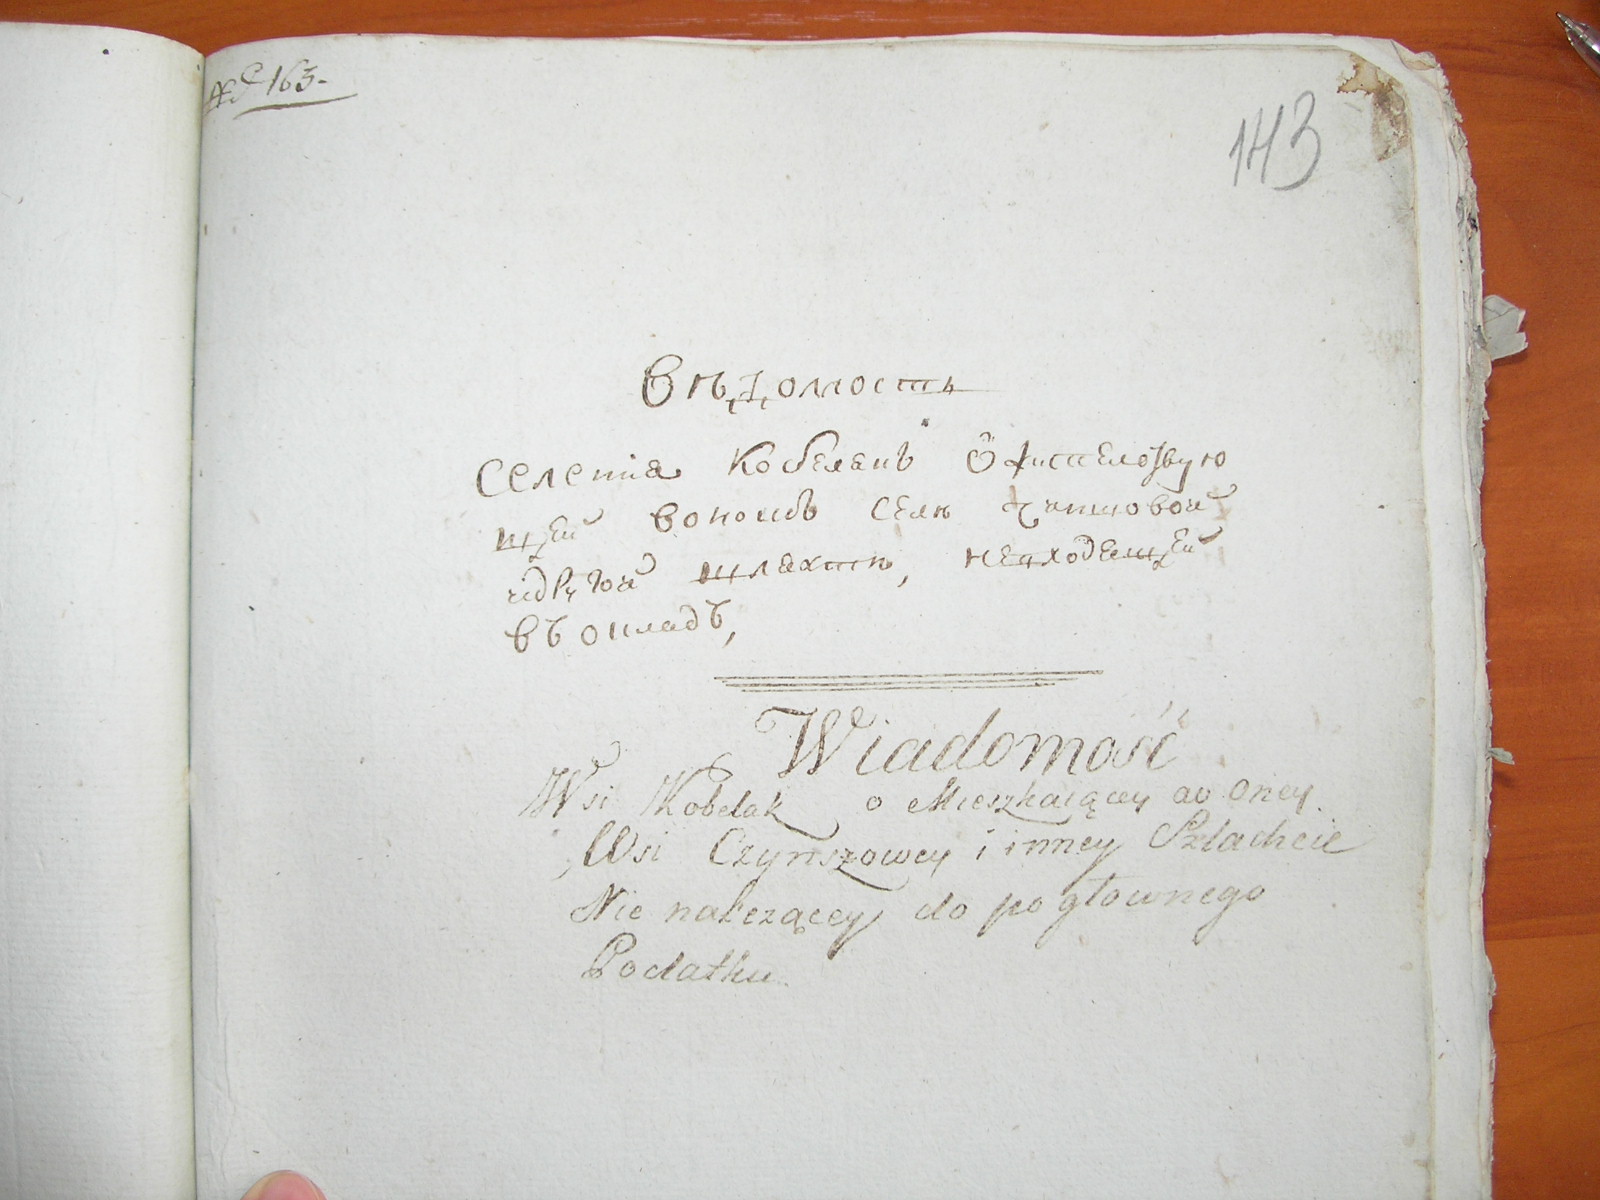 № 163.
143
Вѣдомость
Селения Кобелакъ О жителствую
щей вономъ селѣ чиншовой
идругой шляхтѣ, невходящей
въ окладъ,
Wiadomość
Wsi Kobelak o Mieszkaiącey w oney
Wsi Czynszowey i inney Szlachcie
Nie należącey do pogłownego
Podatku